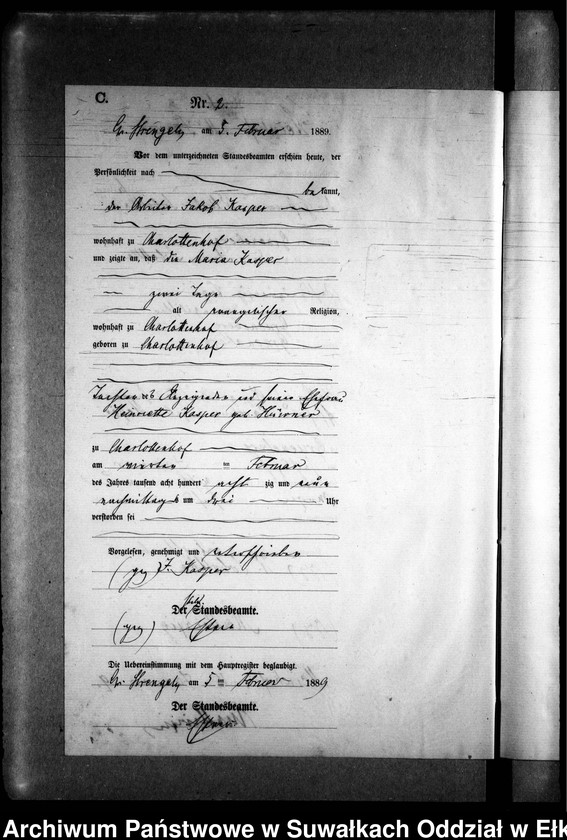 C.
Nr. 2.
Gr. Strengeln, am 5. Februar 1889.
Vor dem unterzeichneten Standesbeamten erschien heute, der
Persönlichkeit nach
bekannt,
der Arbeiter Jakob Kasper
wohnhaft zu Charlottenhof
und zeigte an, daß die Maria Kasper
zwei Tage
alt evangelischer Religion,
wohnhaft zu Charlottenhof
geboren zu Charlottenhof
Tochter des Anzeigenden und seiner Ehefrau
Heinriette Kasper geb.
zu Charlottenhof
am vierten im Februar
des Jahres tausend acht hundert acht zig und neun
nachmittags um drei Uhr
verstorben sei
Vorgelesen, genehmigt und unterschrieben
(gez) J. Kasper
Der Standesbeamte.
(gez)
Die Uebereinstimmung mit dem Hauptregister beglaubigt.
Gr. Strengeln, am 5 Februar 1889
Der Standesbeamte.
Archiwum Państwowe w Suwałkach Oddział w Ełk